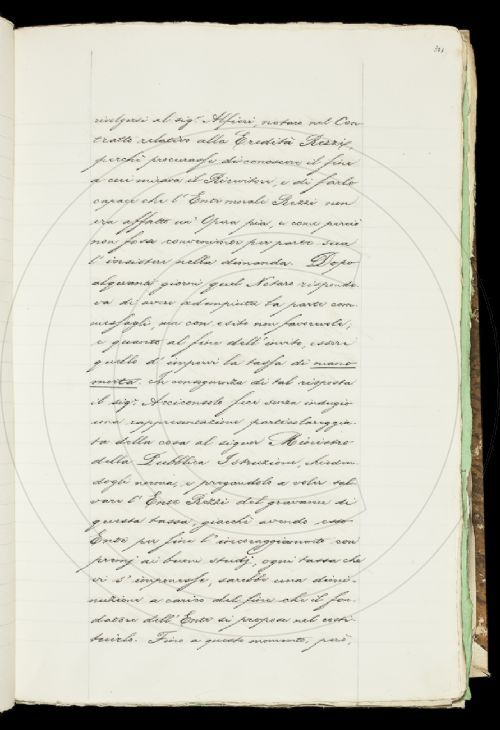 301
rivolgersi al sig.r Alfieri, notaro nel Con-
tratto relativo alla Eredità Rezzi,
perché procurasse di conoscere il fine
a cui mirava il Ricevitore, e di farlo
capace che l'Ente morale Rezzi non
era affatto un'Opera pia, e come perciò
non fosse conveniente per parte sua
l'insistere nella domanda. Dopo
alquanti giorni quel Notaro risponde-
va di avere adempiuta la parte com-
messagli, ma con esito non favorevole,
e quanto al fine dell'invito, essere
quello d'imporvi la tassa di mano
morta. In conseguenza di tal risposta
il sig.r Arciconsolo fece senza indugio
una rappresentazione particolareggia-
ta della cosa al signor Ministro
della Pubblica Istruzione, chieden-
dogli norma, e pregandolo a voler sal-
vare l'Ente Rezzi dal gravame di
questa tassa, giacché avendo esso
Ente per fine l'incoraggiamento con
premj ai buoni studj, ogni tassa che
vi s'imponesse, sarebbe una dimi-
nuzione a carico del fine che il fon-
datore dell'Ente si propose nel costi-
tuirlo. Fino a questo momento, però,